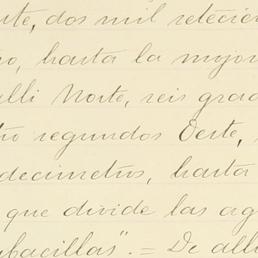 nte, dos mil setecien
o, hasta la mojon
alli Norte, seis grad
tro segundos Oeste,
decimetros, hasta
que divide las ag
bacillas". = De alli